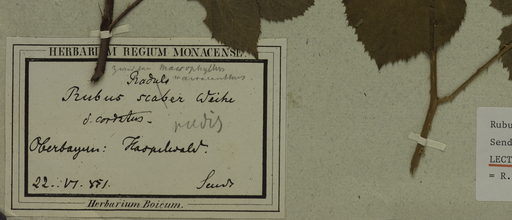 HERBARIUM REGIUM MONACENSE.
macrophyllus
Radula
Rubus scaber Weihe
d. cordatus.
rudis
Oberbayern: Haspelwald.
22. VI. 851. Sendt
Herbarium Boicum.
Rubu
Send
LECT
= R.